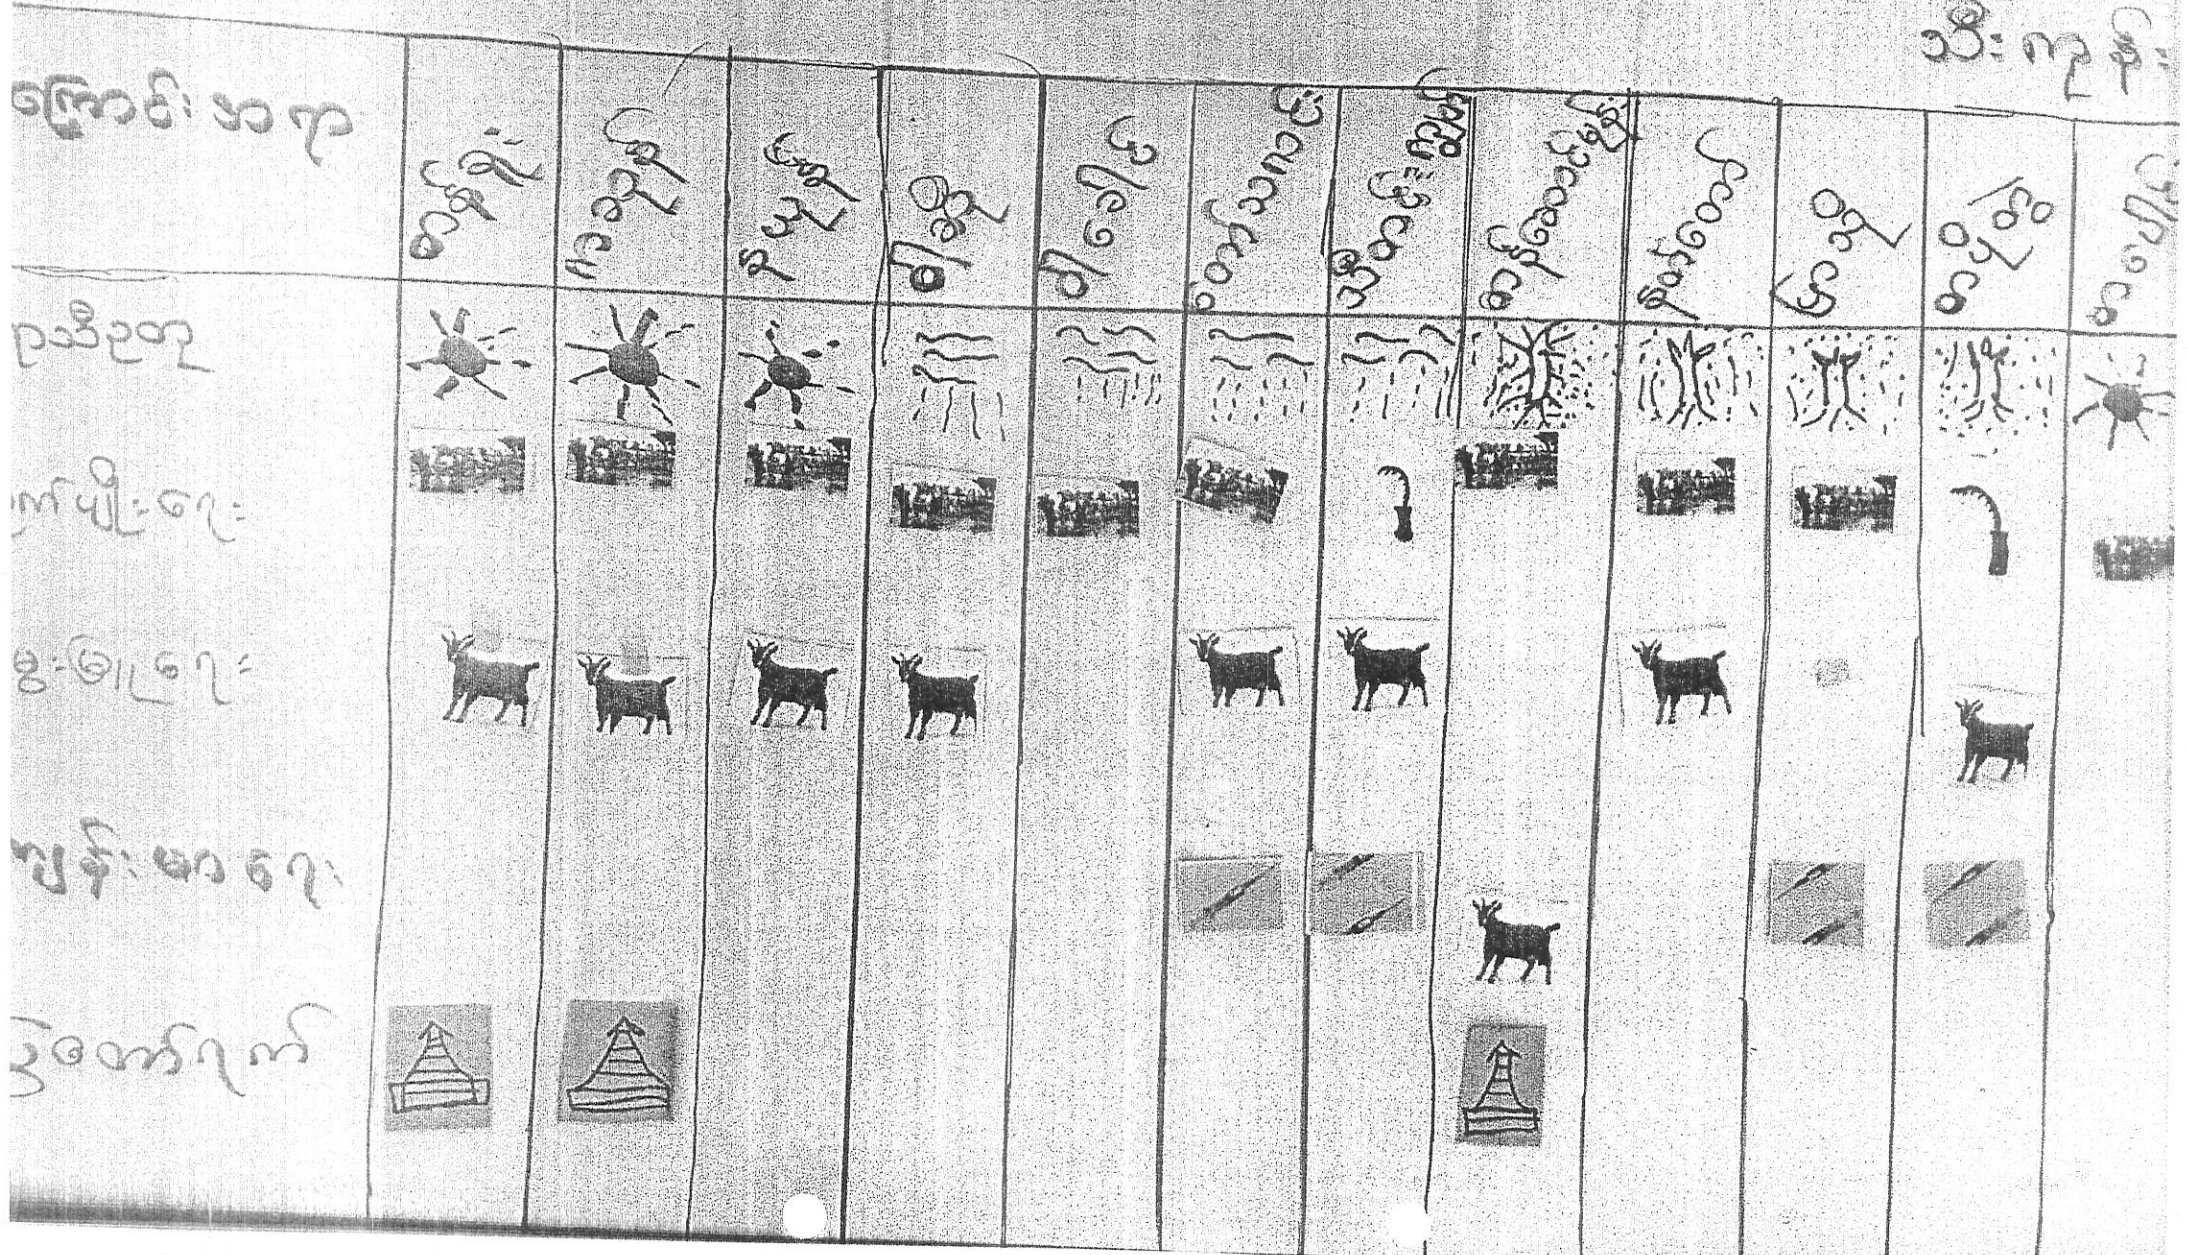 သီးကုန်း
ကြောင်းအရာ
တန်ခူး
ကဆုန်
နယုန်
ဝါဆို
ဝါခေါင်
တော်သလင်း
သီတင်းကျွတ်
တန်ဆောင်မုန်း
နတ်တော်
ပြာသို
တပို့တွဲ
တပေါင်
ရာသီဥတု
ုက်ပျိုးရေး
မွေးမြူရေး
ကျန်းမာရေး
ပွဲတော်ရက်